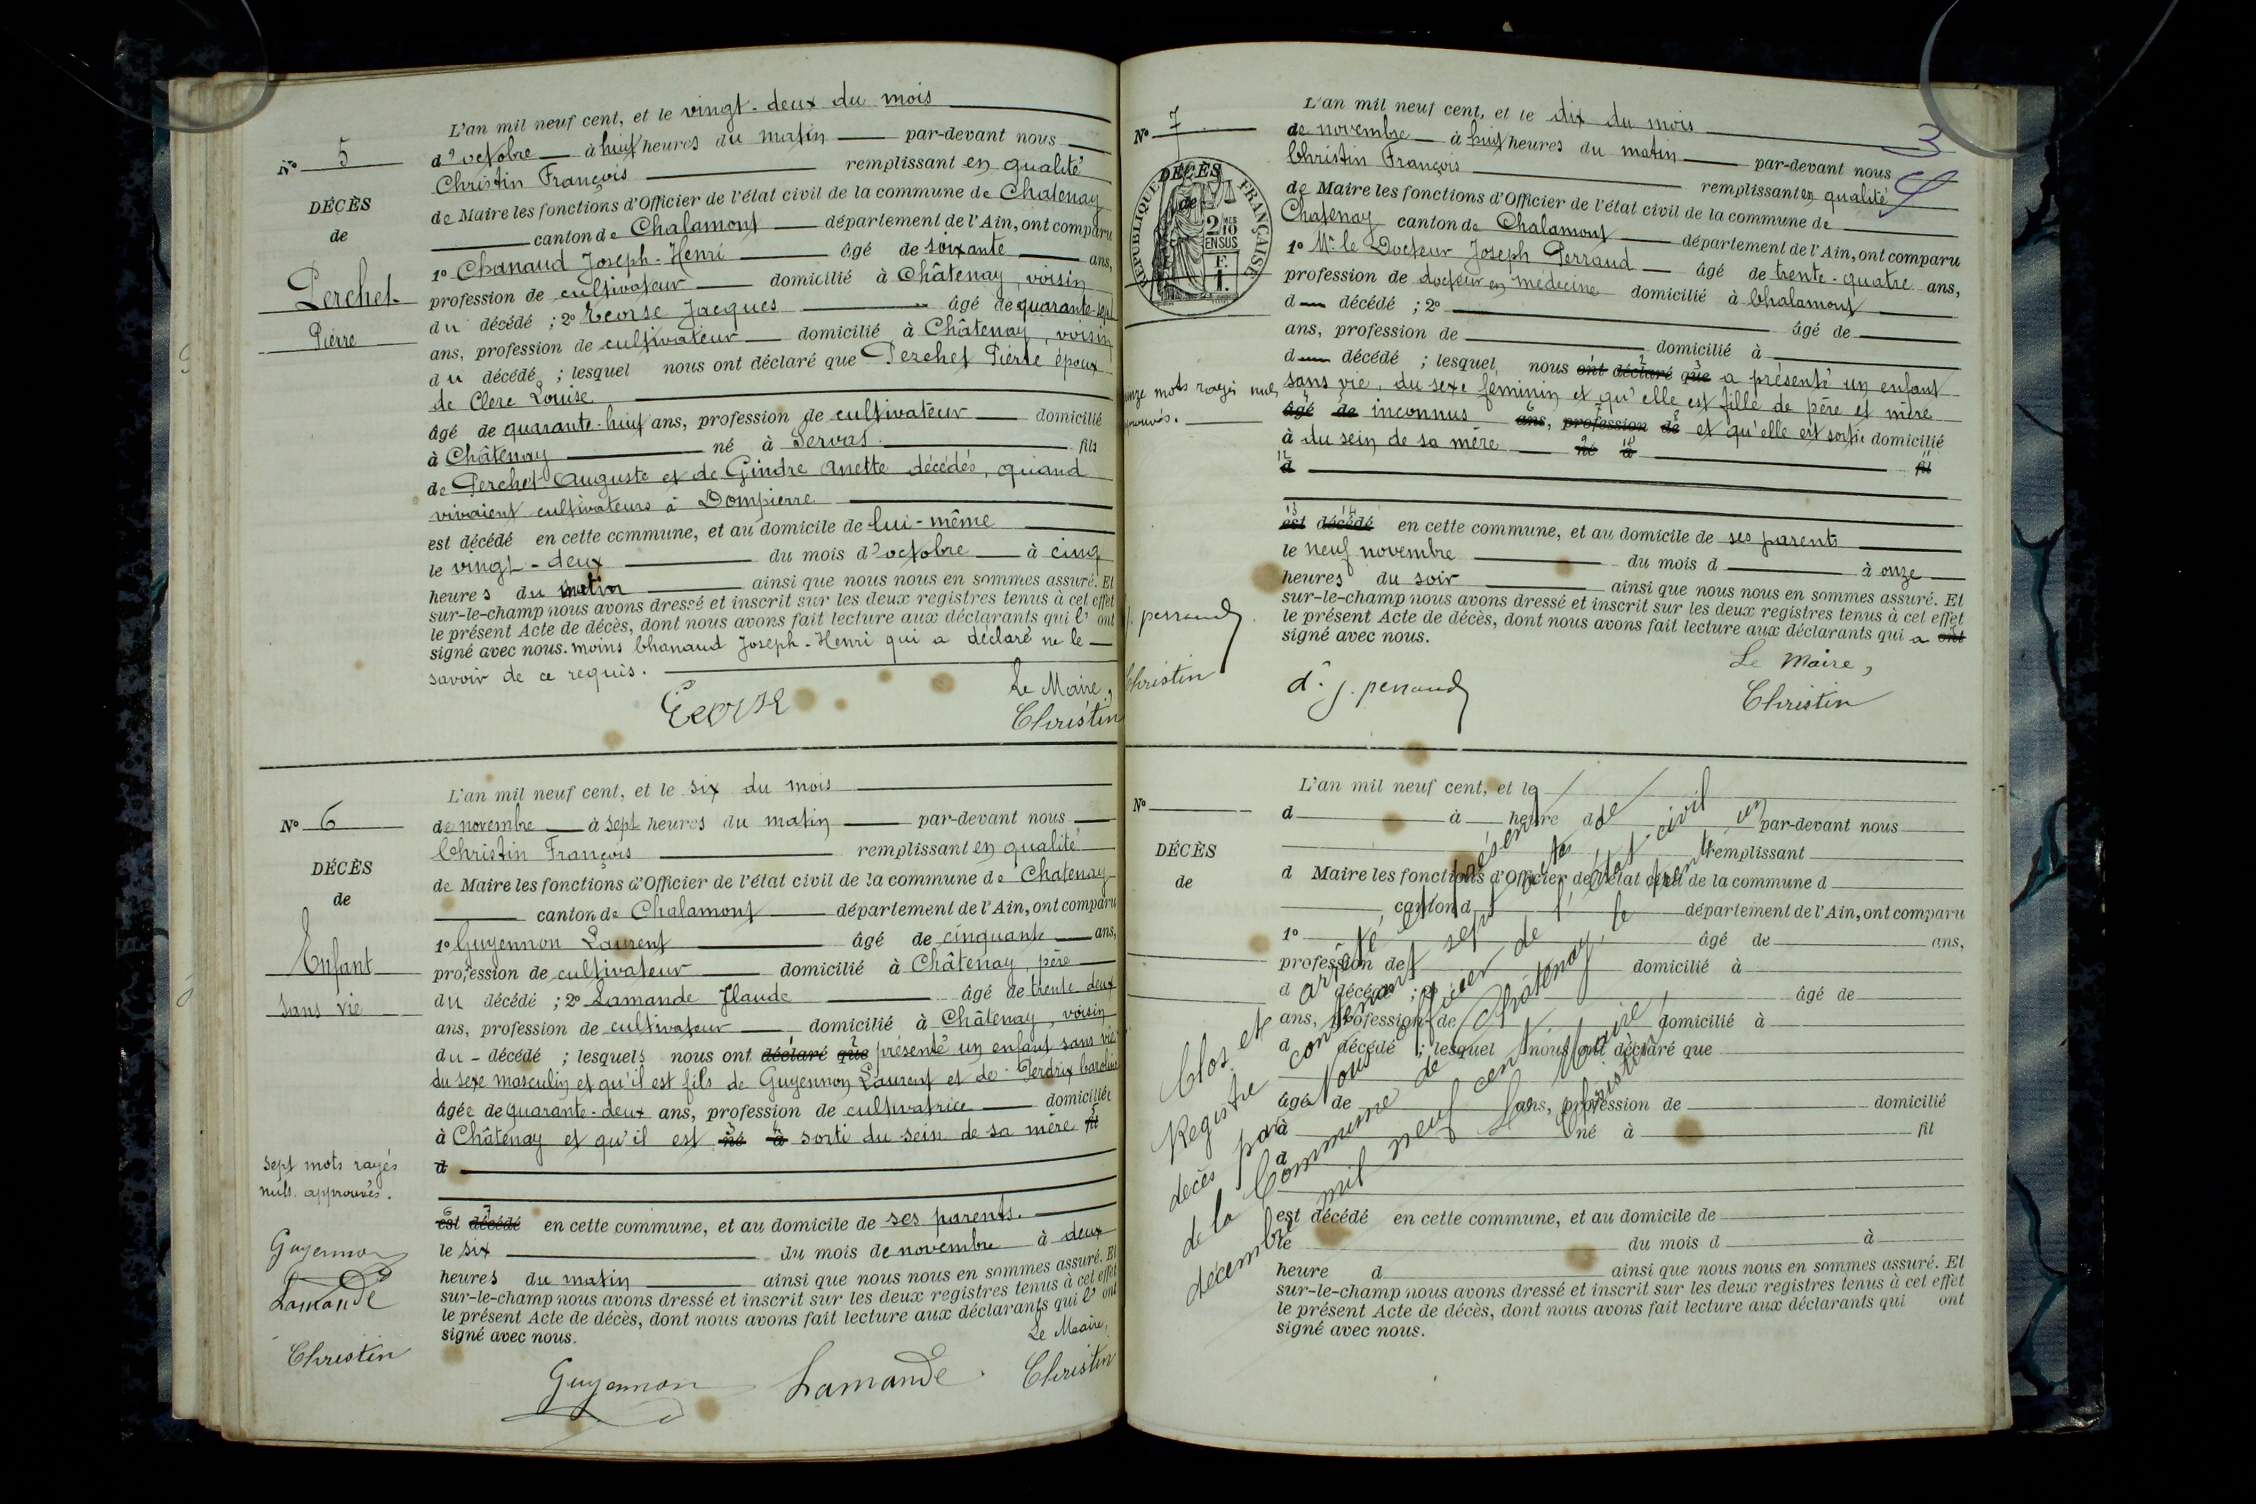 L'an mil neuf cent, et le vingt-deux du mois
N° 5
d'octobre à huit heures du matin par-devant nous
Christin François remplissant en qualité
DÉCÈS
de Maire les fonctions d'Officier de l'état civil de la commune de Chatenay
de
canton de Chalamont département de l'Ain, ont comparu
1° Chanaud Joseph-Henri âgé de soixante ans,
Perchet
profession de cultivateur domicilié à Châtenay, voisin
Pierre
du décédé ; 2° Ecorse Jacques âgé de quarante-sept
ans, profession de cultivateur domicilié à Châtenay, voisin
du décédé ; lesquel nous ont déclaré que Perchet Pierre époux
de Clerc Louise
âgé de quarante-huit ans, profession de cultivateur domicilié
à Châtenay né à Servas fils
de Perchet Auguste et de Gindre Anette décédés, quand
vivaient cultivateurs à Dompierre
est décédé en cette commune, et au domicile de lui-même
le vingt-deux du mois d'octobre à cinq
heures du matin ainsi que nous nous en sommes assuré. Et
sur-le-champ nous avons dressé et inscrit sur les deux registres tenus à cet effet
le présent Acte de décès, dont nous avons fait lecture aux déclarants qui l' ont
signé avec nous. moins Chanaud Joseph-Henri qui a déclaré ne le
savoir de ce requis.
Ecorse
Le Maire,
Christin
L'an mil neuf cent, et le six du mois
N° 6
de novembre à sept heures du matin par-devant nous
Christin François remplissant en qualité
DÉCÈS
de Maire les fonctions d'Officier de l'état civil de la commune de Chatenay
de
canton de Chalamont département de l'Ain, ont comparu
1° Guyennon Laurent âgé de cinquante ans,
Enfant
profession de cultivateur domicilié à Châtenay, père
sans vie
du décédé ; 2° Lamande Claude âgé de trente deux
ans, profession de cultivateur domicilié à Châtenay, voisin
du décédé ; lesquels nous ont déclaré que présenté un enfant sans vie
du sexe masculin et qu'il est fils de Guyennon Laurent et de Perdrix Caroline
âgée de quarante-deux ans, profession de cultivatrice domiciliée
à Châtenay et qu'il est né à sorti du sein de sa mère fil
d
sept mots rayés
nuls approuvés.
est décédé en cette commune, et au domicile de ses parents.
le six du mois de novembre à deux
heures du matin ainsi que nous nous en sommes assuré. Et
sur-le-champ nous avons dressé et inscrit sur les deux registres tenus à cet effet
le présent Acte de décès, dont nous avons fait lecture aux déclarants qui l' ont
signé avec nous.
Guyennon
Lamande
Christin
Le Maire,
Guyennon Lamande Christin
L'an mil neuf cent, et le dix du mois
N° 7
de novembre à huit heures du matin par-devant nous
Christin François remplissant en qualité
DÉCÈS
de
RÉPUBLIQUE FRANÇAISE
2/10 EN SUS
F. 1.
de Maire les fonctions d'Officier de l'état civil de la commune de
Chatenay canton de Chalamont département de l'Ain, ont comparu
1° Mr le Docteur Joseph Perraud âgé de trente-quatre ans,
profession de docteur en médecine domicilié à Chalamont
d décédé ; 2° âgé de
ans, profession de domicilié à
d décédé ; lesquel nous ont déclaré que a présenté un enfant
sans vie, du sexe féminin et qu'elle est fille de père et mère
âgé de inconnus ans, profession de et qu'elle est sortie domicilié
à du sein de sa mère né à
d fil
mots rayés nuls
est décédé en cette commune, et au domicile de ses parents
le neuf novembre du mois d à onze
heures du soir ainsi que nous nous en sommes assuré. Et
sur-le-champ nous avons dressé et inscrit sur les deux registres tenus à cet effet
le présent Acte de décès, dont nous avons fait lecture aux déclarants qui a ont
signé avec nous.
J. perraud
Christin
Le Maire,
dr j. perraud Christin
L'an mil neuf cent, et le
N°
d à heure d par-devant nous
remplissant
DÉCÈS
d Maire les fonctions d'Officier de l'état civil de la commune d
de
canton d département de l'Ain, ont comparu
1° âgé de ans,
profession de domicilié à
d décédé ; 2° âgé de
ans, profession de domicilié à
d décédé ; lesquel nous ont déclaré que
âgé de ans, profession de domicilié
à né à fil
d
est décédé en cette commune, et au domicile de
le du mois d à
heure d ainsi que nous nous en sommes assuré. Et
sur-le-champ nous avons dressé et inscrit sur les deux registres tenus à cet effet
le présent Acte de décès, dont nous avons fait lecture aux déclarants qui ont
signé avec nous.
Clos et arrêté le présent
Registre contenant sept actes de
décès par Nous officier de l'état-civil
de la Commune de Châtenay, le trente un
décembre mil neuf cent.
Le Maire,
Christin